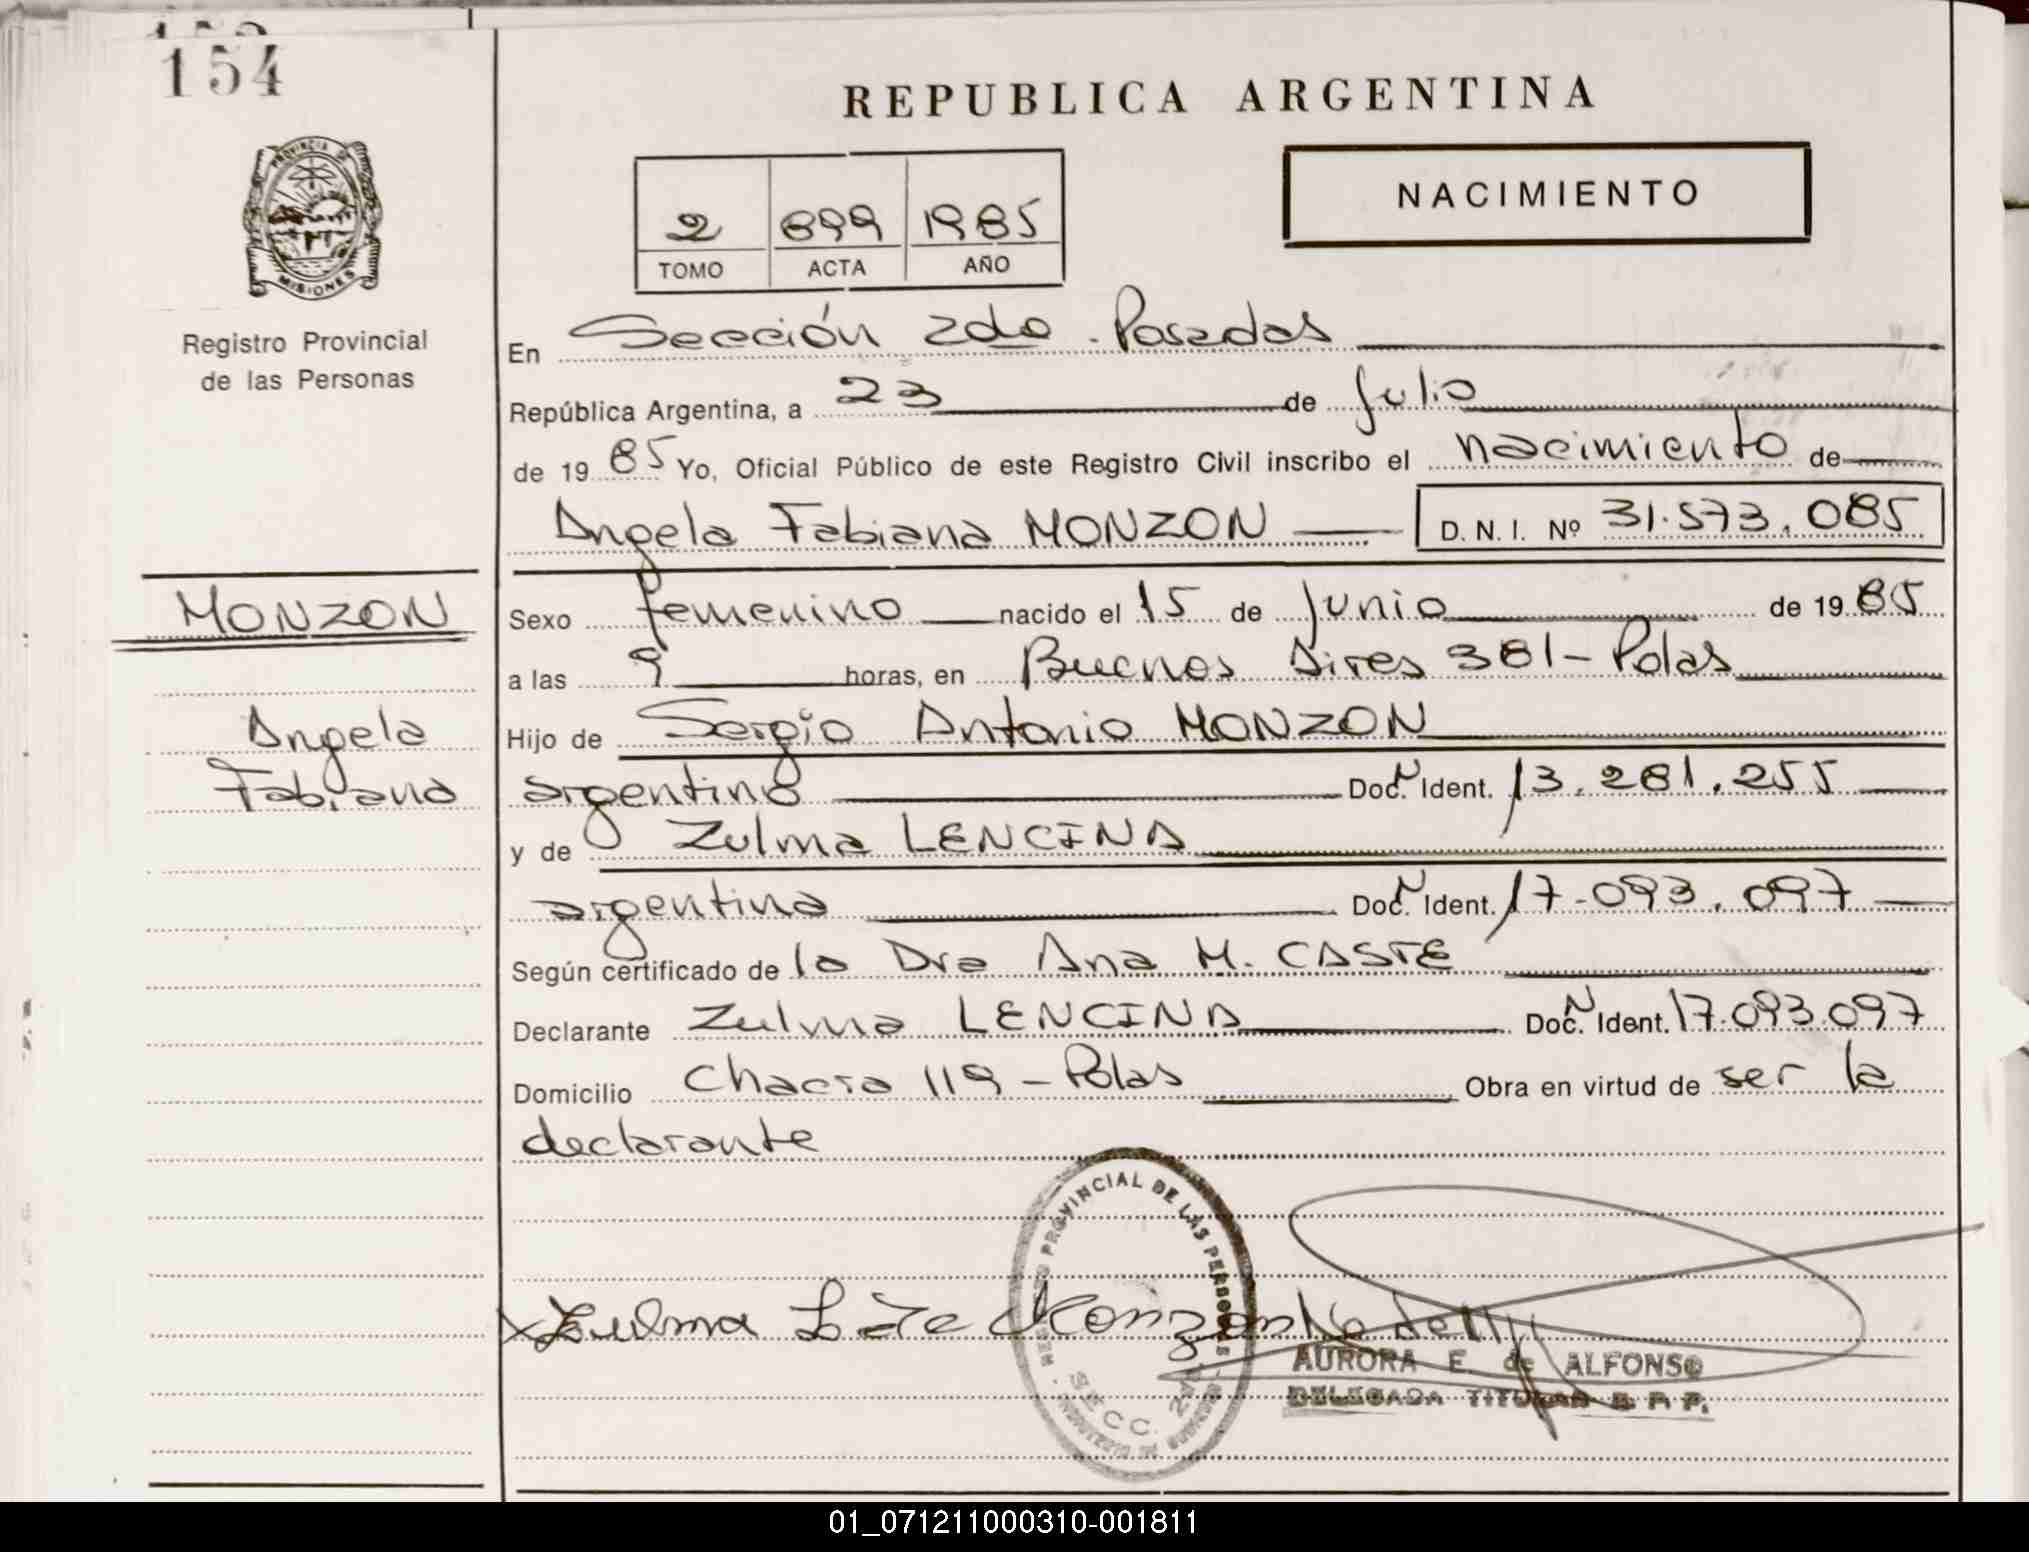 154
REPUBLICA ARGENTINA
PROVINCIA DE
MISIONES
Registro Provincial
de las Personas
2 899 1985
TOMO ACTA AÑO
NACIMIENTO
En Sección 2da - Posadas
República Argentina, a 23 de Julio
de 19 85 Yo, Oficial Público de este Registro Civil inscribo el nacimiento de
Angela Fabiana MONZON D. N. I. Nº 31.573.085
MONZON
Angela
Fabiana
Sexo femenino nacido el 15 de Junio de 19 85
a las 9 horas, en Buenos Aires 381 - Pdas
Hijo de Sergio Antonio MONZON
argentino Doc. N Ident. 13.281.255
y de Zulma LENCINA
argentina Doc. N Ident. 17.093.097
Según certificado de la Dra Ana M. CASTE
Declarante Zulma LENCINA Doc. N Ident. 17.093.097
Domicilio Chacra 119 - Pdas Obra en virtud de ser la
declarante
REGISTRO PROVINCIAL DE LAS PERSONAS
SECC. 2da
X Zulma L de Monzon
AURORA E. de ALFONSO
DELEGADA TITULAR R. P. P.
01_071211000310-001811